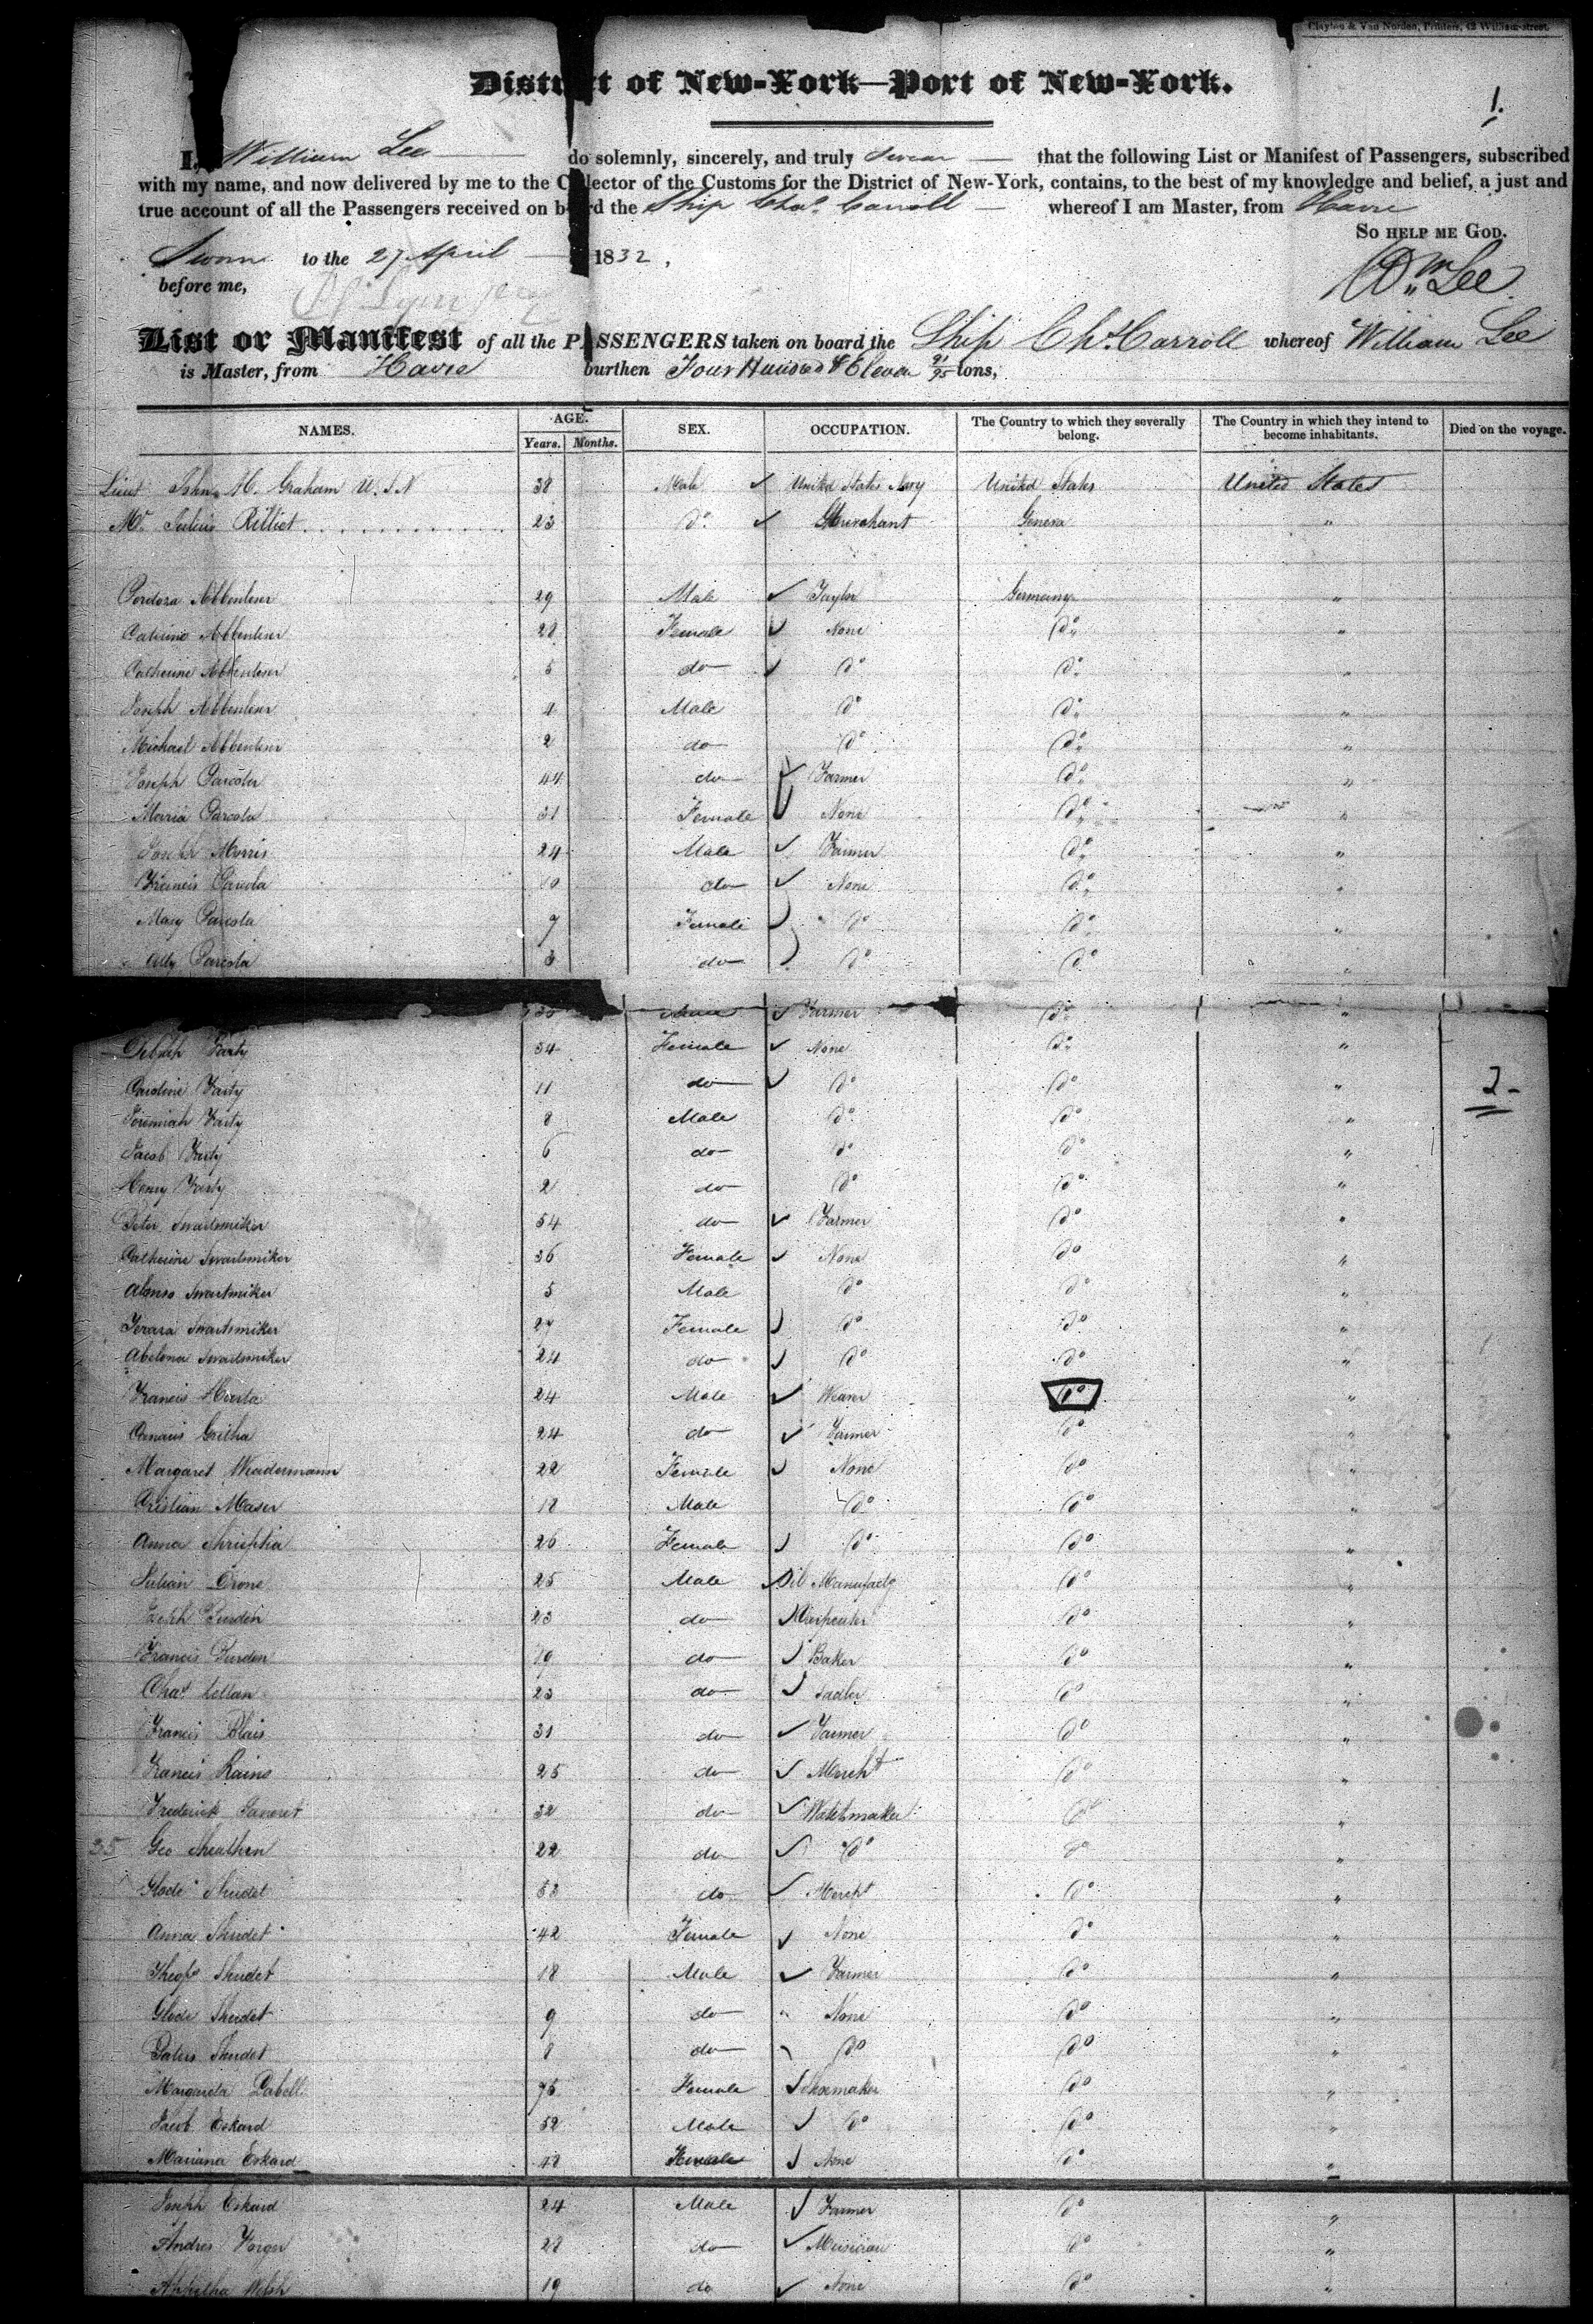 Clayton & Van Norden, Printers, 42 William-street.
District of New-York—Port of New-York.
1.
I, William Lee do solemnly, sincerely, and truly swear that the following List or Manifest of Passengers, subscribed
with my name, and now delivered by me to the Collector of the Customs for the District of New-York, contains, to the best of my knowledge and belief, a just and
true account of all the Passengers received on board the Ship Chas. Carroll whereof I am Master, from Havre
So help me God.
Sworn to the 27 April 1832,
before me,
Wm Lee
List or Manifest of all the PASSENGERS taken on board the Ship Chs. Carroll whereof William Lee
is Master, from Havre burthen Four Hundred & Eleven 91/95 tons,
NAMES. AGE. Years. Months. SEX. OCCUPATION. The Country to which they severally belong. The Country in which they intend to become inhabitants. Died on the voyage.
Lieut John H. Graham U.S.N 38 Male United States Navy United States United States
Mr. Julius Rilliet 23 do. Merchant Geneva "
Abbenleur 29 Male Taylor Germany "
Catherine Abbenleur 28 Female None do. "
Catherine Abbenleur 5 do do do. "
Joseph Abbenleur 4 Male do do. "
Michael Abbenleur 2 do do do. "
Joseph Parcola 44 do Farmer do. "
Maria Parcola 31 Female None do. "
Joseph Morris 24 Male Farmer do. "
Francis Parcola 10 do None do. "
Mary Parcola 9 Female do do. "
Ally Parcola 3 do do do "
Male Farmer do. "
Farty 34 Female None do. "
Caroline Farty 11 do do do "
2
Jeremiah Farty 8 Male do do "
Jacob Farty 6 do do do "
Henry Farty 2 do do do "
Peter Swartsmiker 54 do Farmer do "
Catherine Swartsmiker 36 Female None do "
Alonso Swartsmiker 5 Male do do "
Swartsmiker 27 Female do do "
Abelona Swartsmiker 24 do do do "
Francis Harta 24 Male Weaver do "
Gritha 24 do Farmer do "
Margaret Weadermann 22 Female None do "
Cristian Maser 18 Male do do "
Anna 26 Female do do "
Julian Drone 25 Male Oil Manufactg do "
Joseph Purden 23 do Carpenter do "
Francis Purden 19 do Baker do "
Chas. 23 do Sadler do "
Francis Blais 31 do Farmer do "
Francis Rains 25 do Mercht do "
Frederick Janeret 32 do Watchmaker do "
35 Geo 22 do do do "
Glode Shudet 53 do Mercht do "
Anna Shudet 42 Female None do "
Shudet 18 Male Farmer do "
Glode Shudet 9 do None do "
Shudet 8 do do do "
Margareta Labell 75 Female Shoemaker do "
Jacob Eskard 52 Male do do "
Mariana Eskard 48 Female None do "
Joseph Eskard 24 Male Farmer do "
Andres 28 do Musician do "
Welsh 19 do None do "